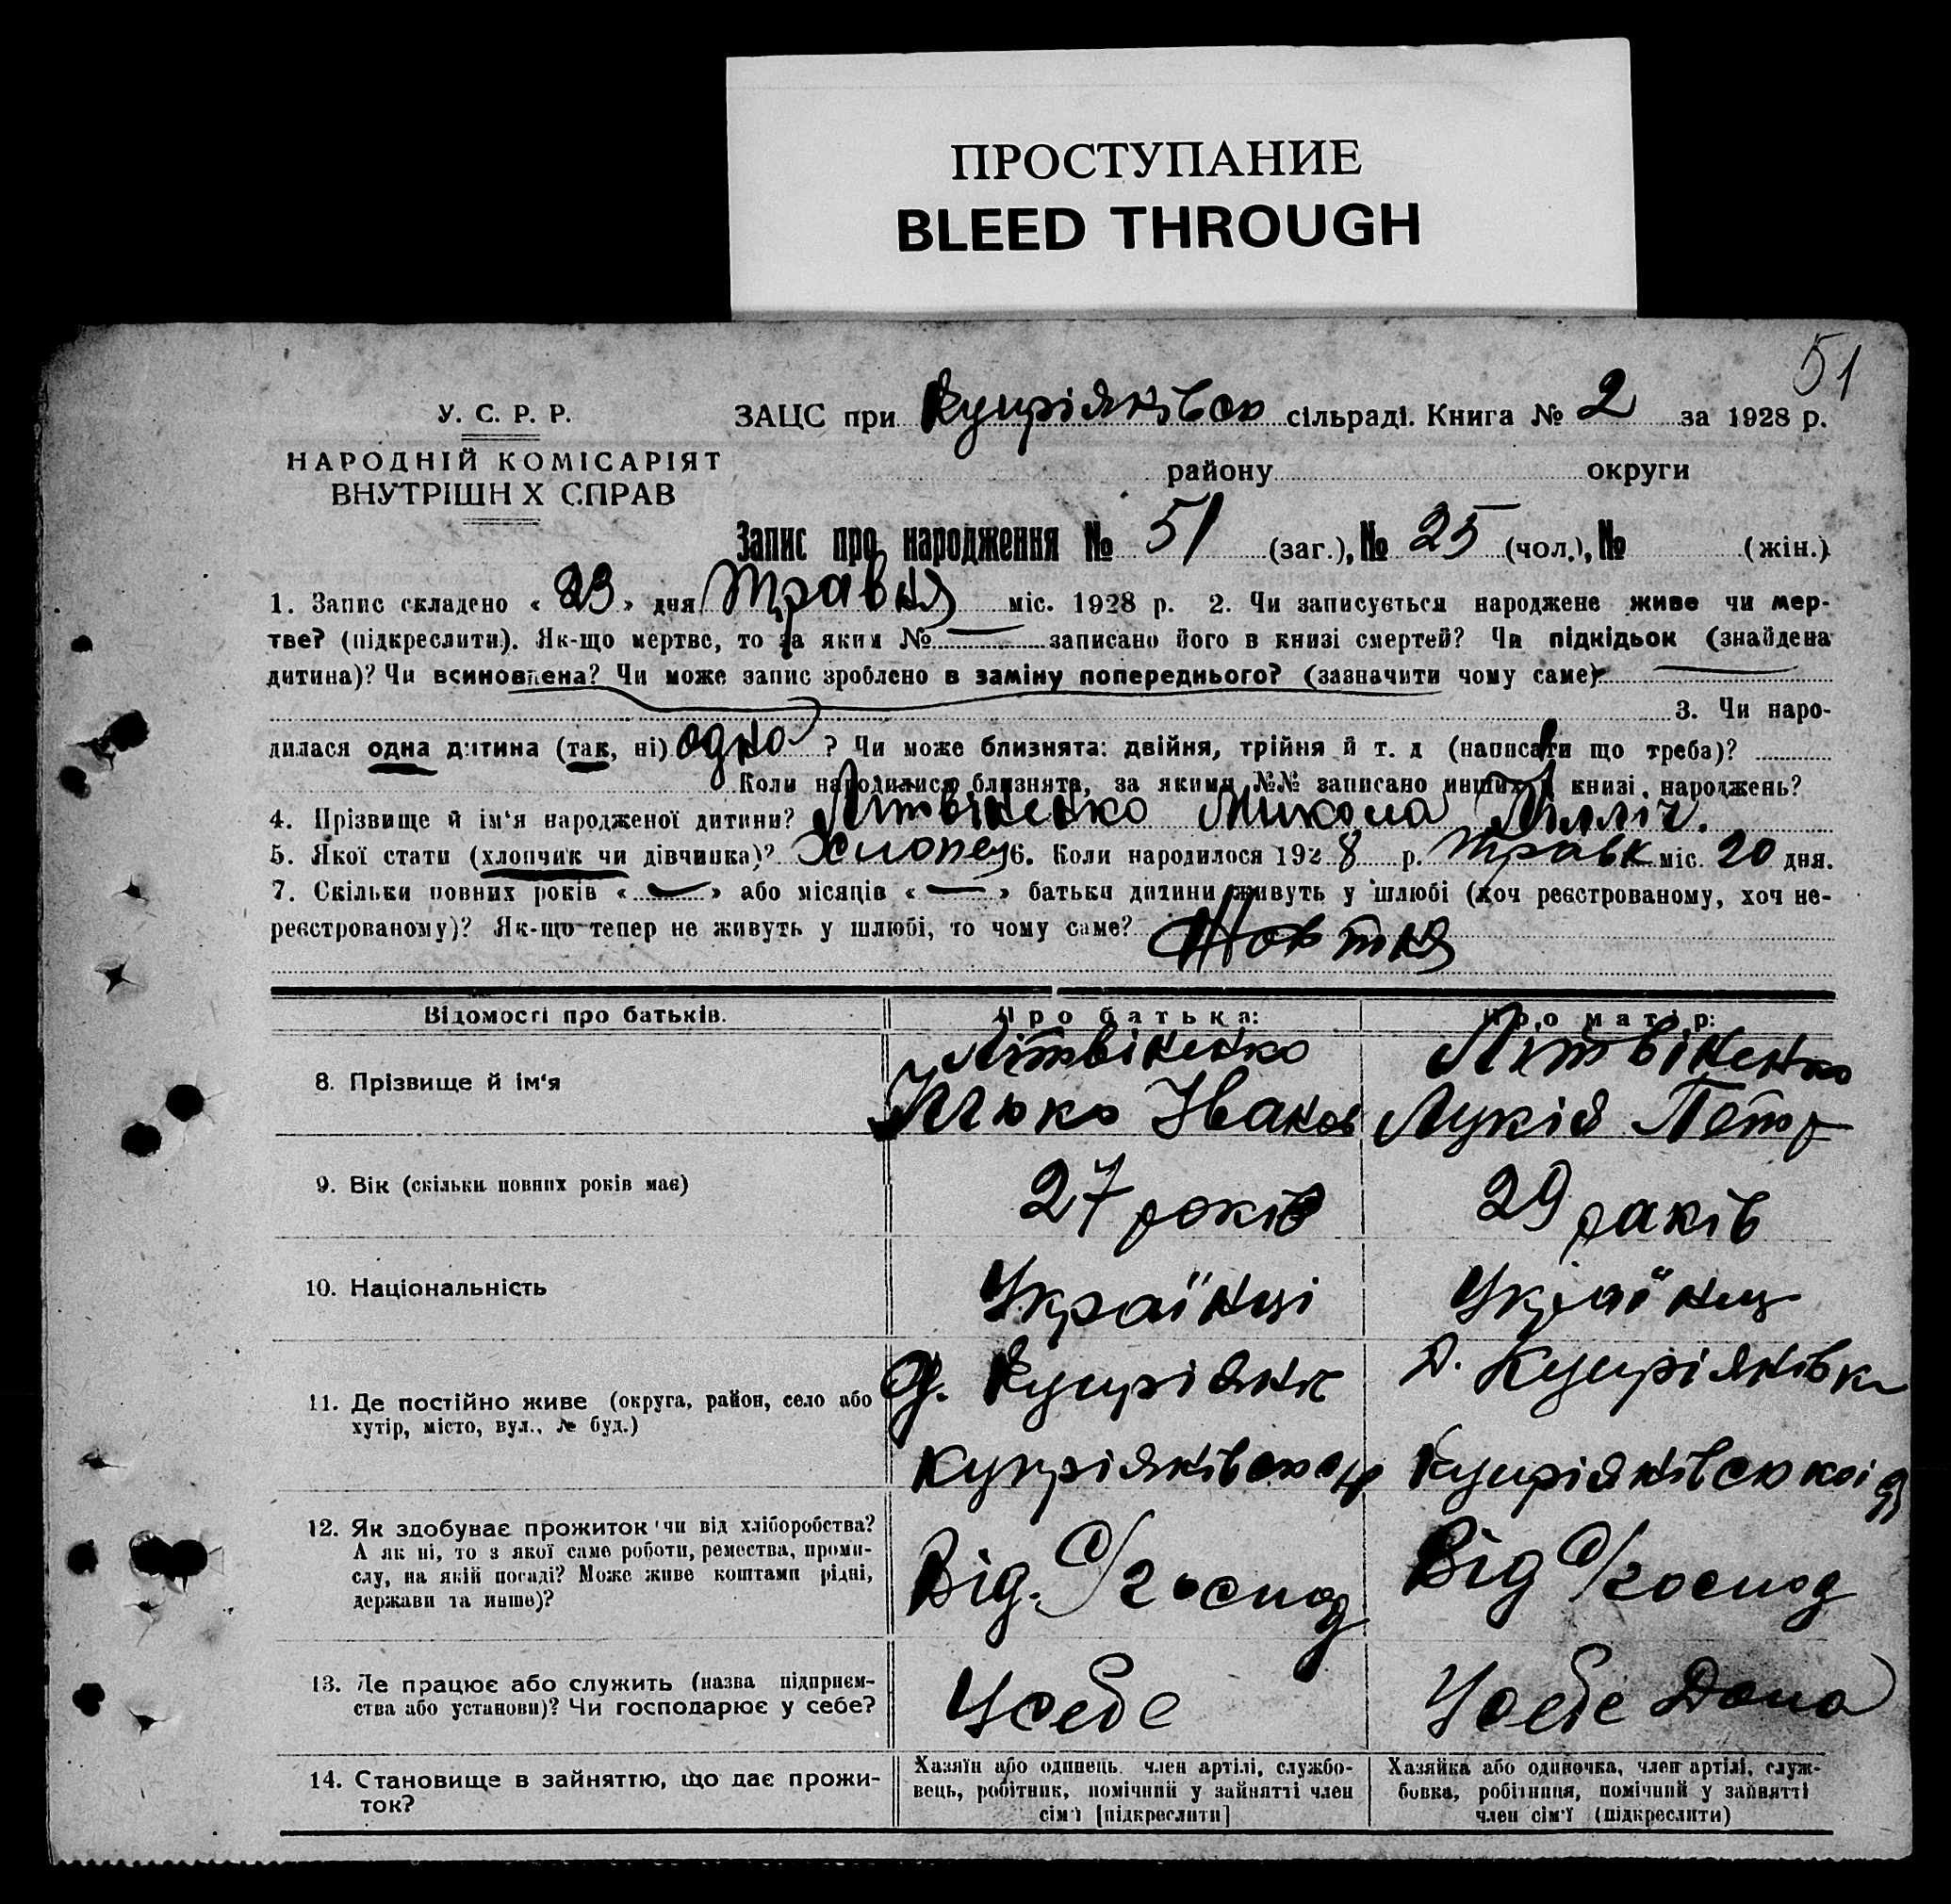 ПРОСТУПАНИЕ
BLEED THROUGH
51
У. С. Р. Р.
НАРОДНІЙ КОМІСАРІЯТ
ВНУТРІШН Х СПРАВ
ЗАЦС при Купріянівсю сільраді. Книга № 2 за 1928 р.
району округи
Запис про народження № 51 (заг.), № 25 (чол.), № (жін.)
1. Запис складено « 23 » дня Травня міс. 1928 р. 2. Чи записується народжене живе чи мер-
тве? (підкреслити). Як-що мертве, то за яким № — записано його в книзі смертей? Чи підкідьок (знайдена
дитина)? Чи всиновлена? Чи може запис зроблено в заміну попереднього? (зазначити чому саме) —
3. Чи наро-
дилася одна дитина (так, ні) одно ? Чи може близнята: двійня, трійня й т. д (написати що треба)?
Коли народилися близнята, за якими №№ записано инших в книзі народжень?
4. Прізвище й ім'я народженої дитини? Літвіненко Микола
5. Якої стати (хлопчик чи дівчинка)? Хлопец 6. Коли народилося 1928 р. Травн міс. 20 дня.
7. Скільки повних років « — » або місяців « — » батьки дитини живуть у шлюбі (хоч реєстрованому, хоч не-
реєстрованому)? Як-що тепер не живуть у шлюбі, то чому саме? Жовтня
Відомості про батьків. Про батька: Про матір:
8. Прізвище й ім'я
Літвіненко
Ілько Іванов
Літвіненко
Лукія Петр
9. Вік (скільки повних років має) 27 років 29 раків
10. Національність Українці Українц
11. Де постійно живе (округа, район, село або
хутір, місто, вул., № буд.)
Купріянівсь
Д. Купріянівка
12. Як здобуває прожиток чи від хліборобства?
А як ні, то з якої саме роботи, ремества, проми-
слу, на якій посаді? Може живе коштами рідні,
держави та инше)?
Від. С/господ
Від С/господ
13. Де працює або служить (назва підприєм-
ства або установи)? Чи господарює у себе?
Усебе
Усебе Дома
14. Становище в зайняттю, що дає прожи-
ток?
Хазяїн або одинець. член артілі, службо-
вець, робітник, помічний у зайнятті член
сім'ї [підкреслити]
Хазяйка або одиночка, член артілі, служ-
бовка, робітниця, помічний у зайнятті
член сім'ї (підкреслити)